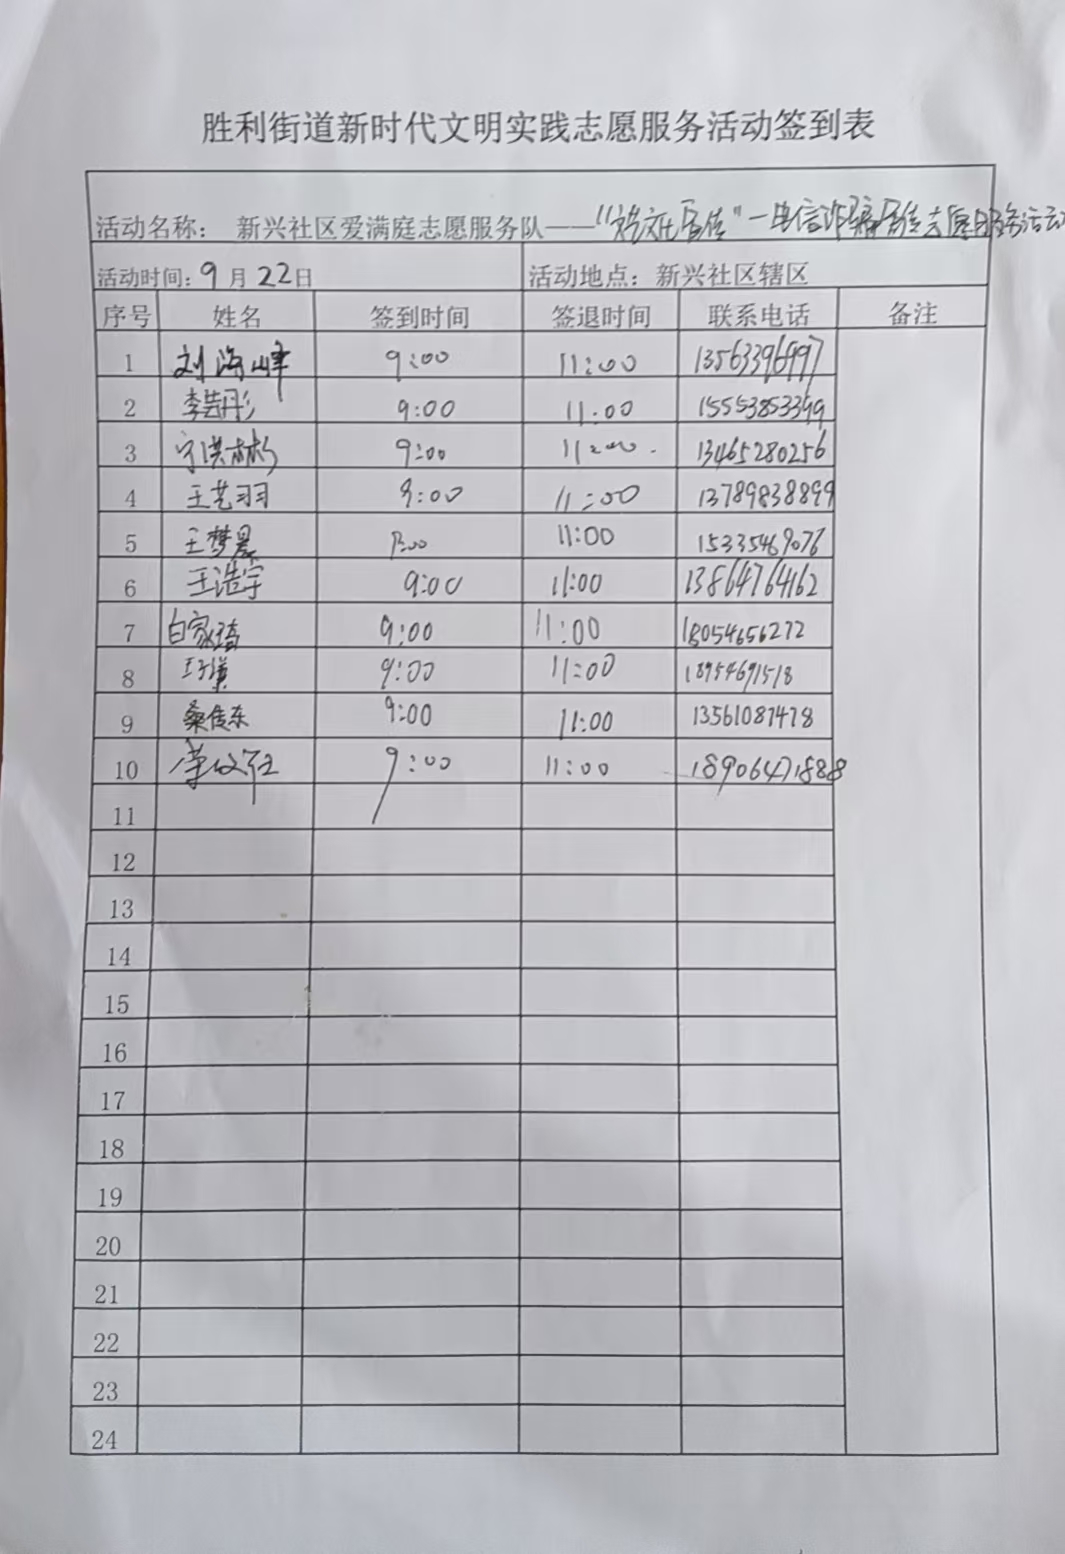 胜利街道新时代文明实践志愿服务活动签到表
活动名称： 新兴社区爱满庭志愿服务队——"宣传"—电信诈骗宣传志愿服务活动
活动时间：9月22日 活动地点：新兴社区辖区
序号 姓名 签到时间 签退时间 联系电话 备注
1 刘海峰 9:00 11:00 13563396997
2 李喆彤 9:00 11:00 15553853399
3 宁洪彬 9:00 11:00 13465280256
4 王艺羽 9:00 11:00 13789838899
5 王梦晨 11:00 15335469076
6 王浩宇 9:00 11:00 13864764162
7 白家琦 9:00 11:00 18054656272
8 9:00 11:00 18954691518
9 桑传东 9:00 11:00 13561087478
10 9:00 11:00 18906471888
11
12
13
14
15
16
17
18
19
20
21
22
23
24